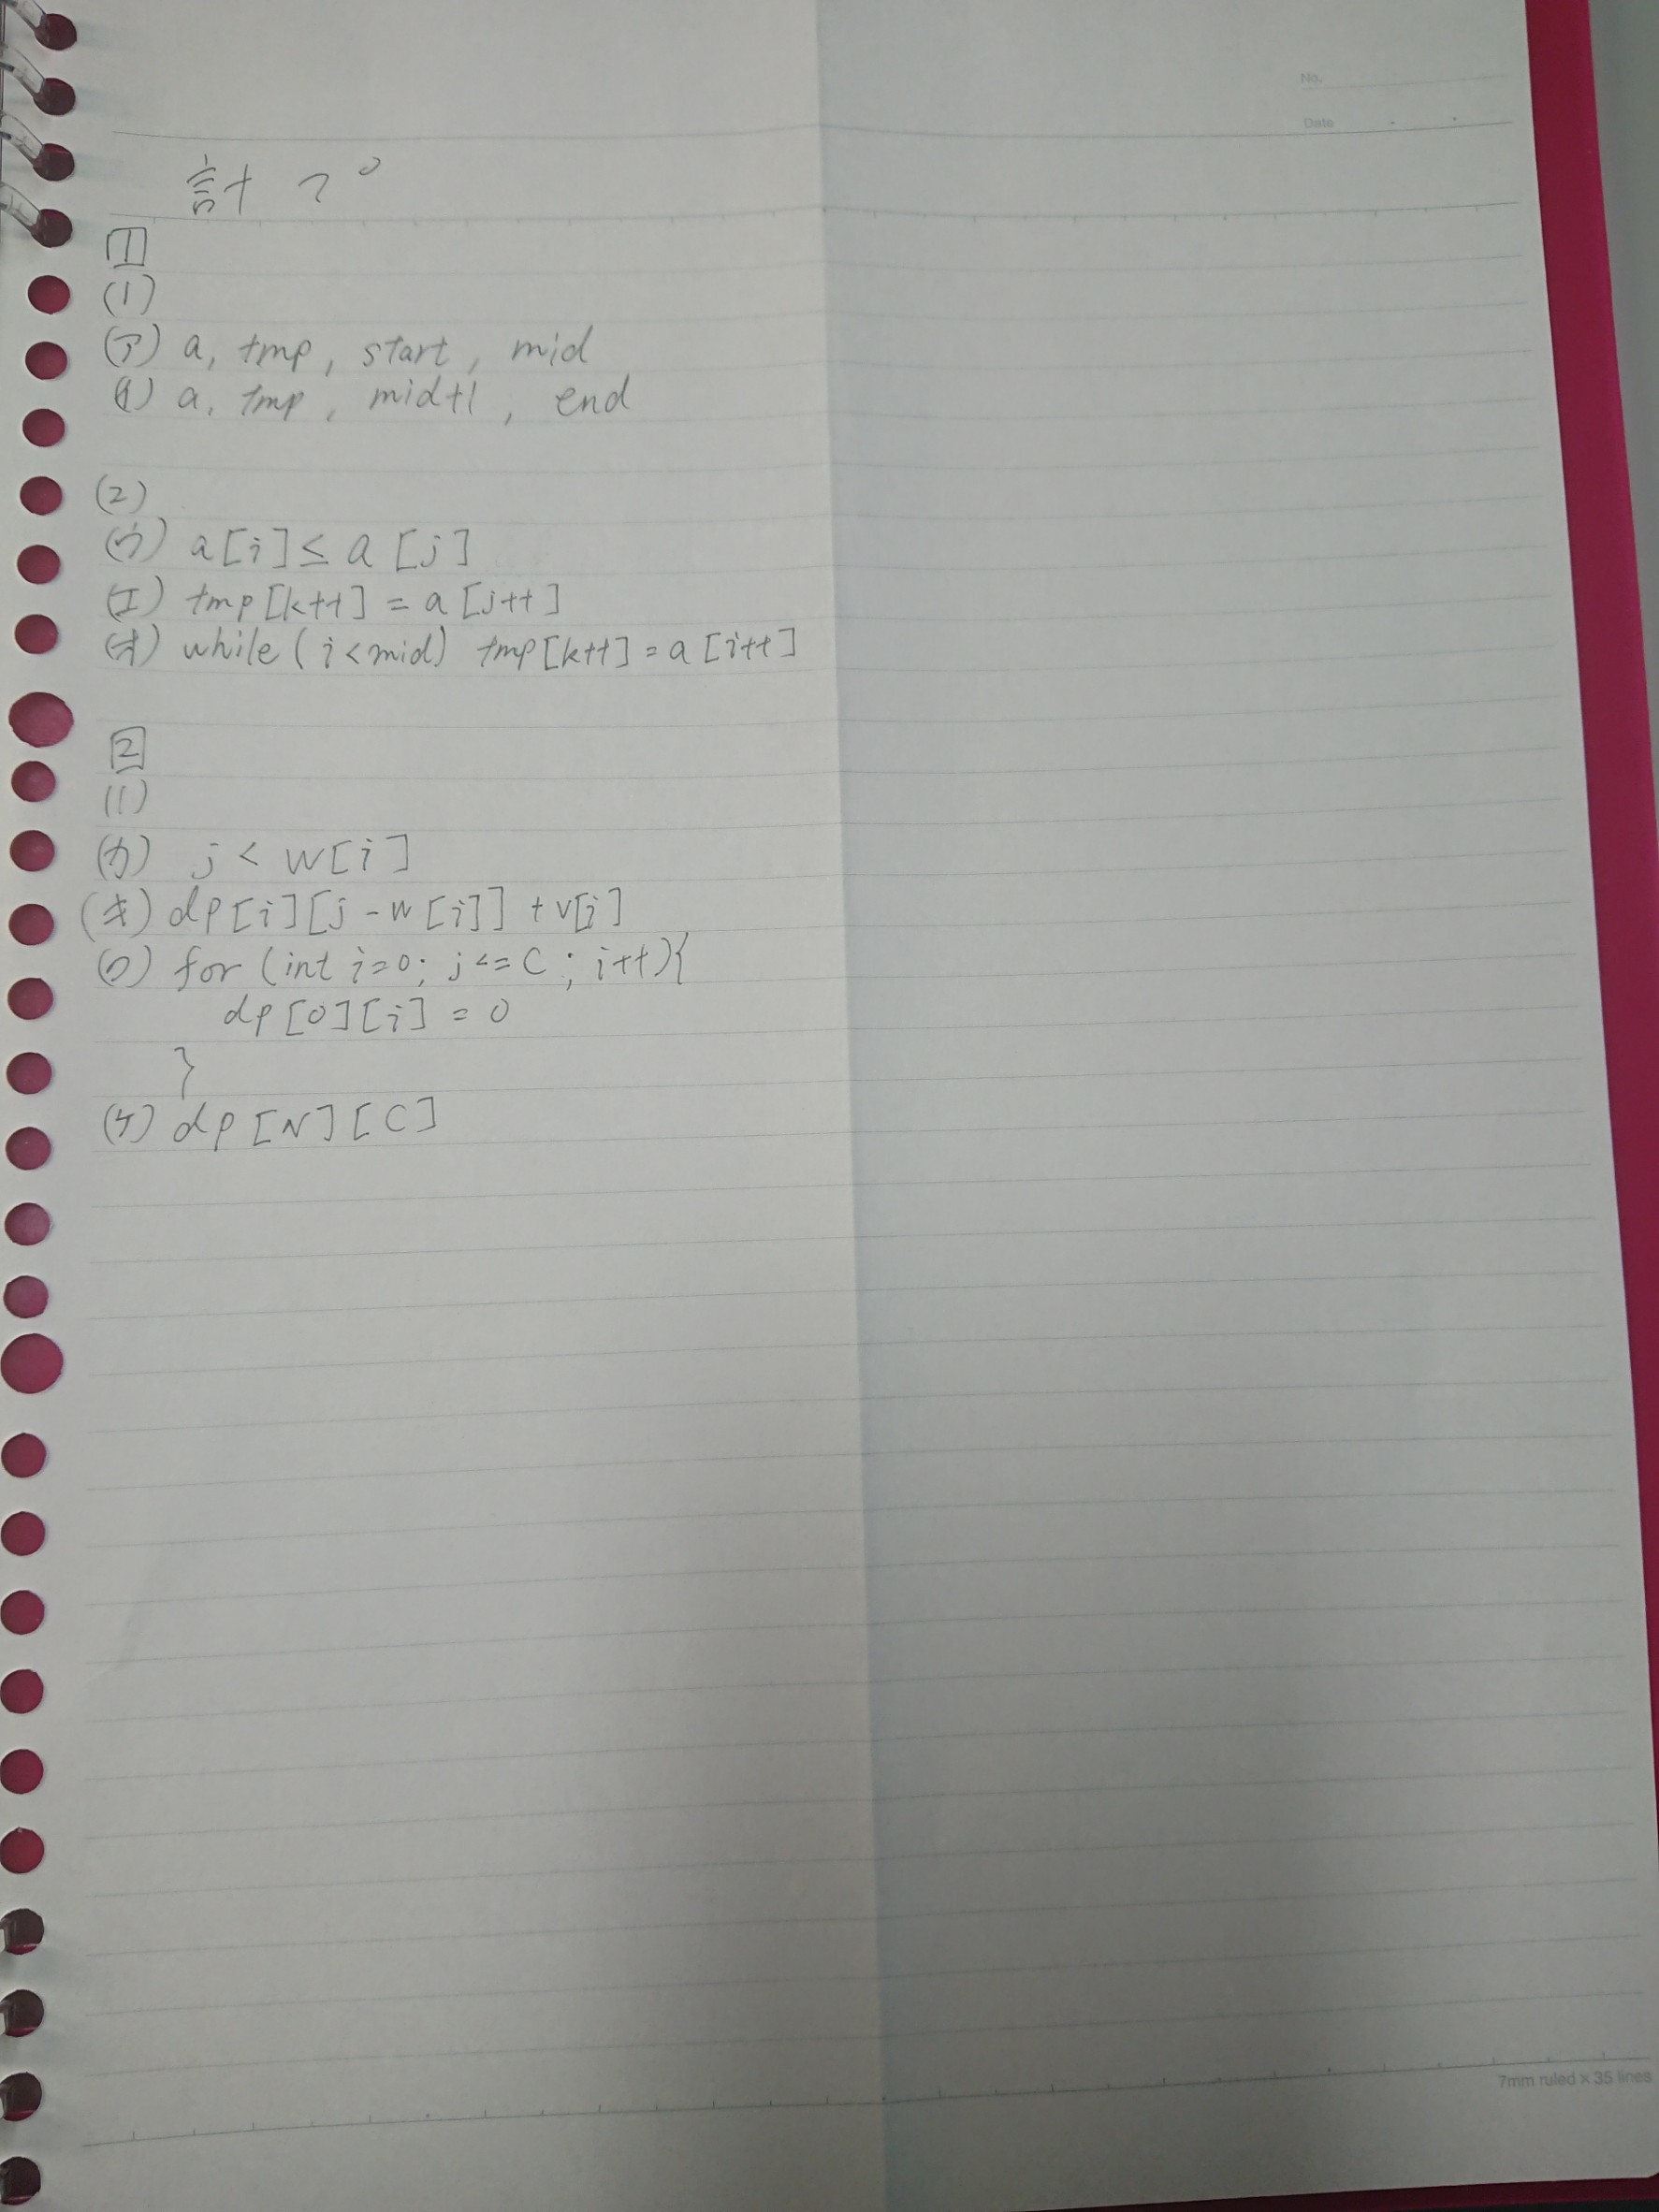 No.
Date
計プ
1
(1)
(ア) a, tmp, start, mid
(イ) a, tmp, mid+1, end
(2)
(ウ) a[i] ≤ a[j]
(エ) tmp[k++] = a[j++]
(オ) while(i<mid) tmp[k++] = a[i++]
2
(1)
(カ) j < w[i]
(キ) dp[i][j-w[i]] + v[i]
(ク) for (int i=0; j<=C; i++){
dp[0][i] = 0
}
(ケ) dp[N][C]
7mm ruled × 35 lines